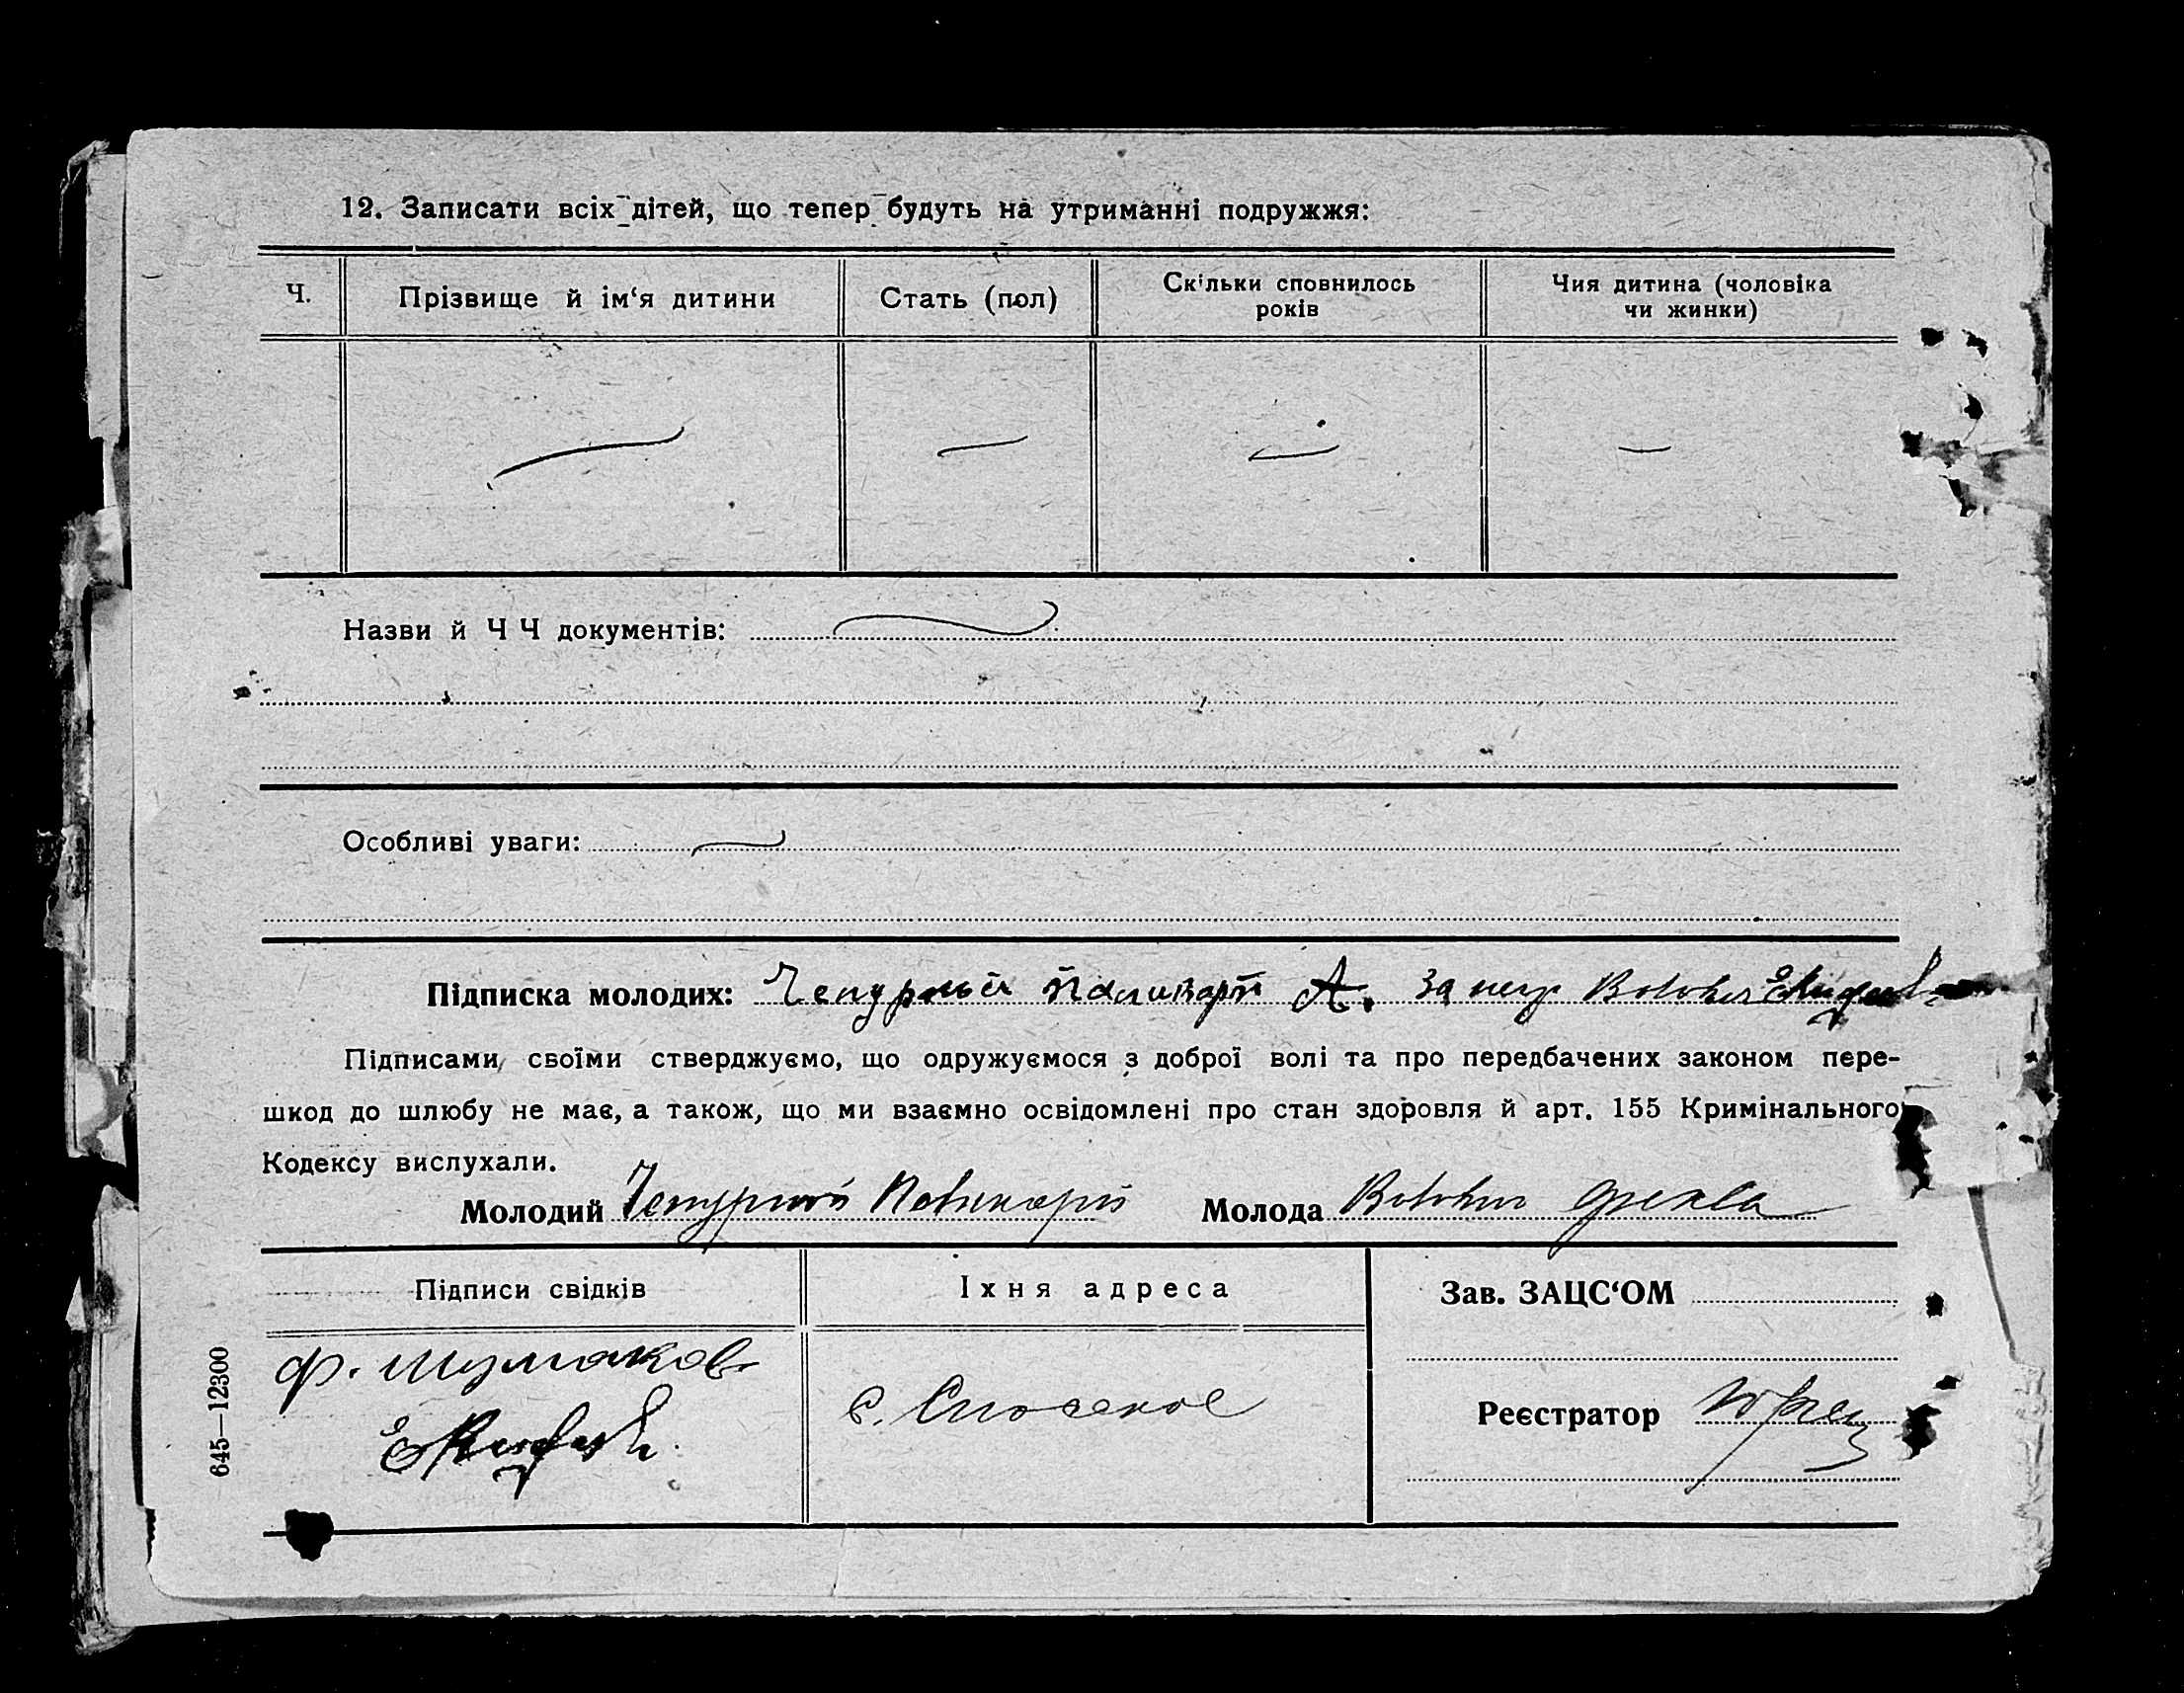 12. Записати всіх дітей, що тепер будуть на утриманні подружжя:
Ч.
Прізвище й ім‘я дитини
Стать (пол)
Скільки сповнилось
років
Чия дитина (чоловіка
чи жинки)
Назви й Ч Ч документів:
Особливі уваги:
Підписка молодих: Чепурный А.
Підписами своїми стверджуємо, що одружуємося з доброї волі та про передбачених законом пере-
шкод до шлюбу не має, а також, що ми взаємно освідомлені про стан здоровля й арт. 155 Кримінального
Кодексу вислухали.
Молодий Чепурний Поликарп Молода
Підписи свідків
Іхня адреса
Зав. ЗАЦС‘ОМ
Ф. Шумаков
с. Спасское
Реєстратор
645—12300